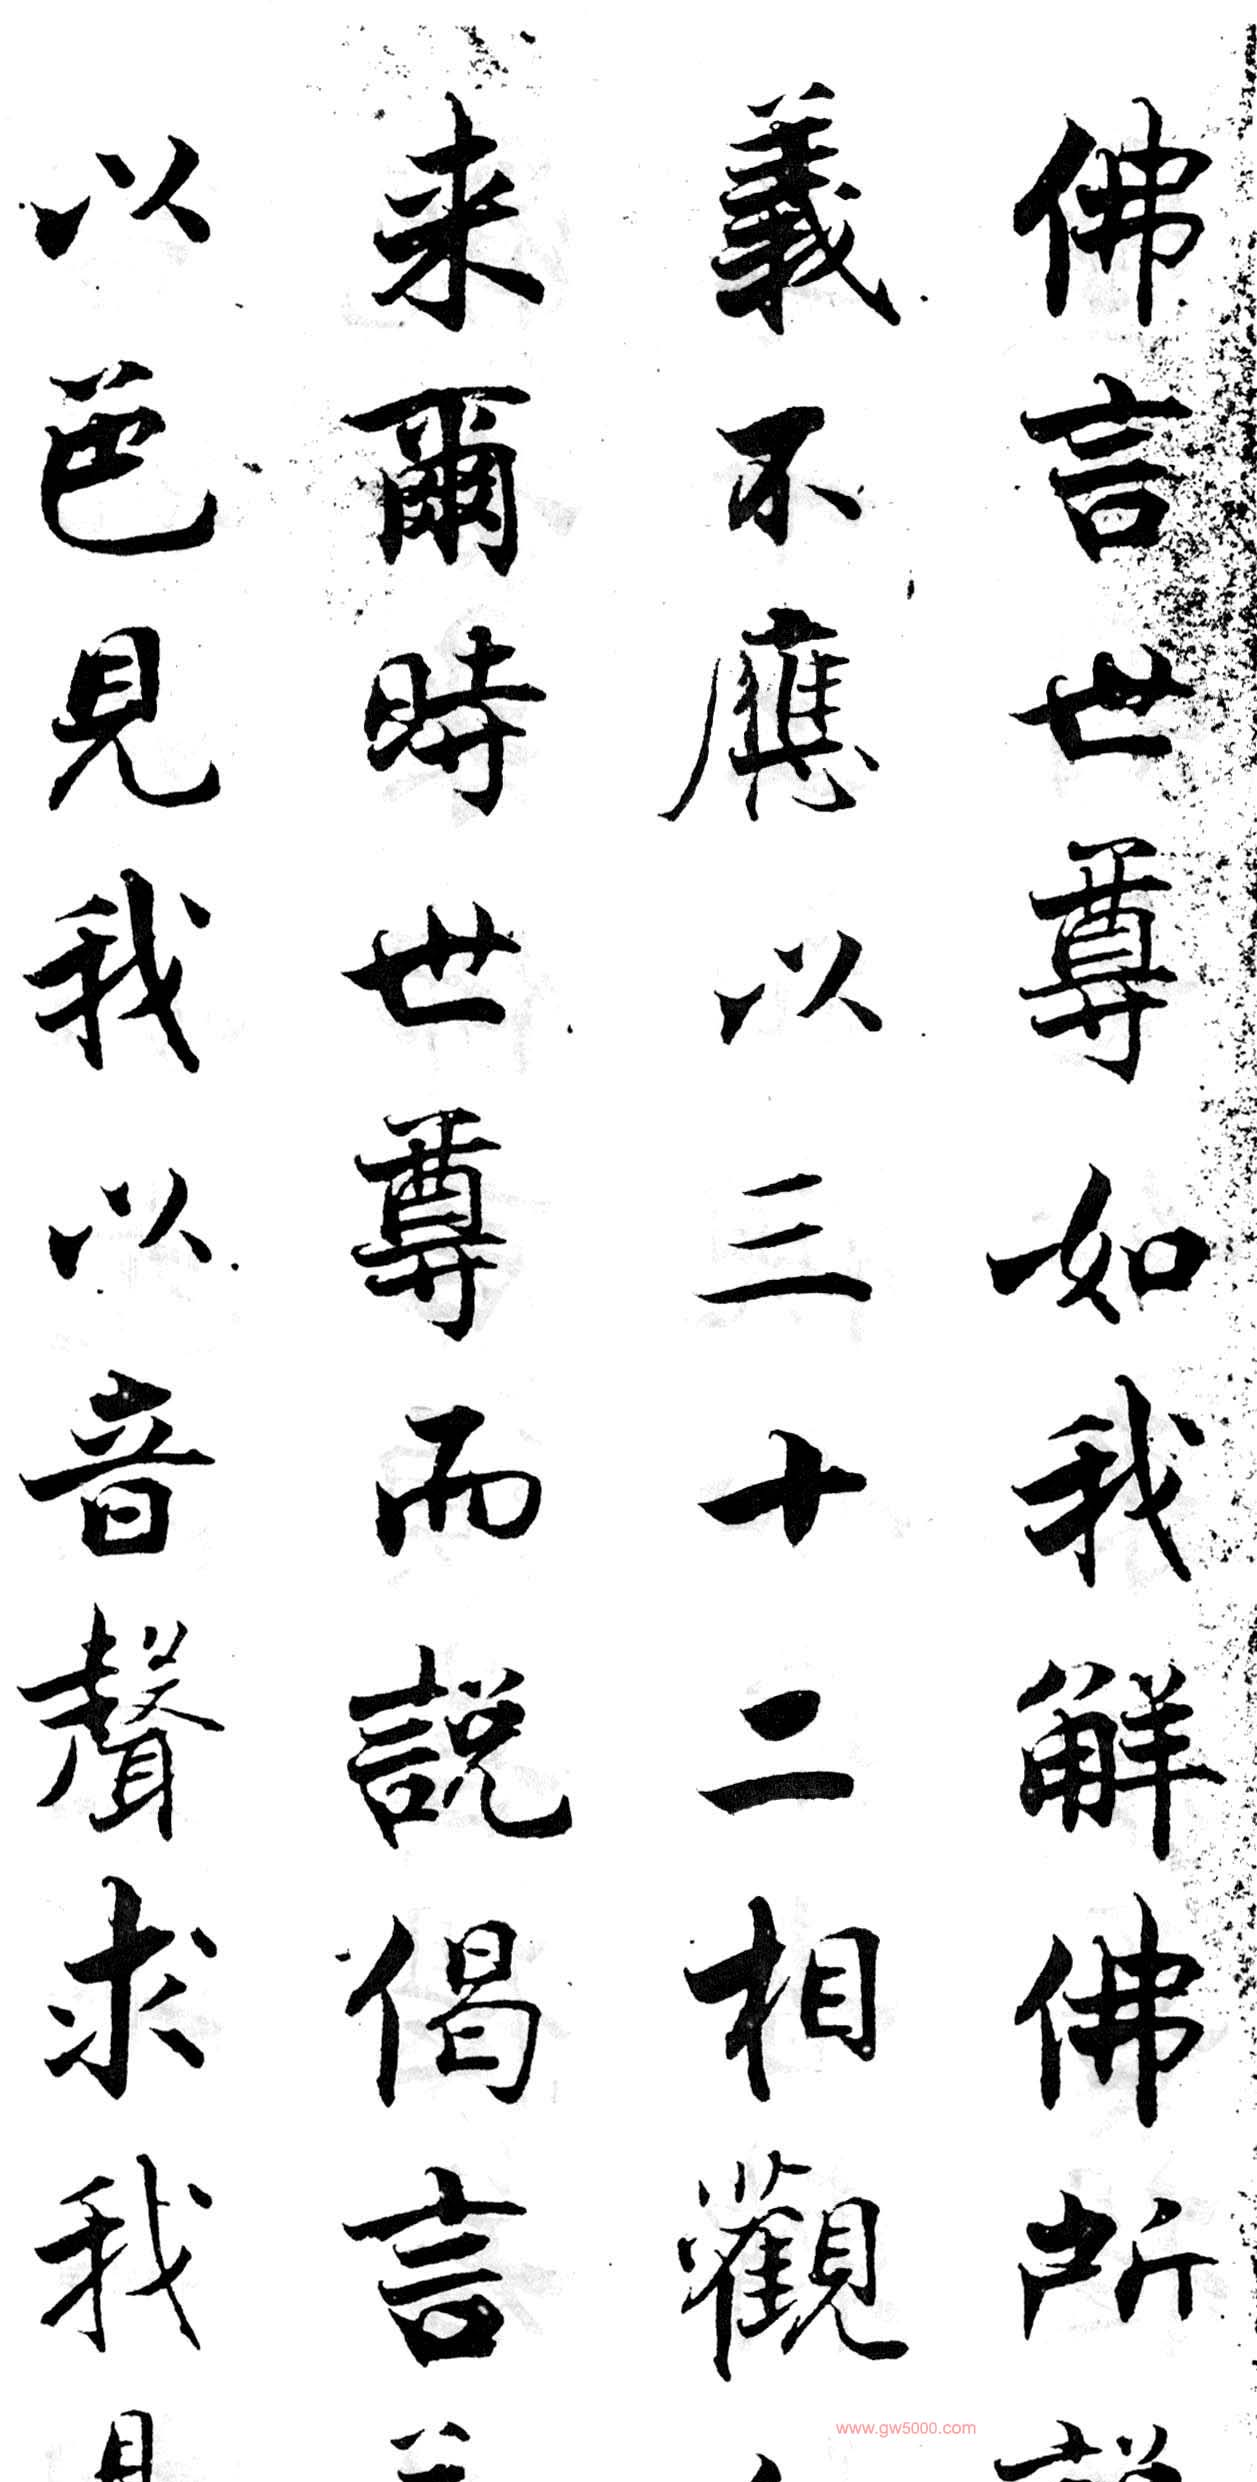 佛言世尊如我解佛所說
義不應以三十二相觀
来爾時世尊而說偈言
以色見我以音聲求我
www.gw5000.com